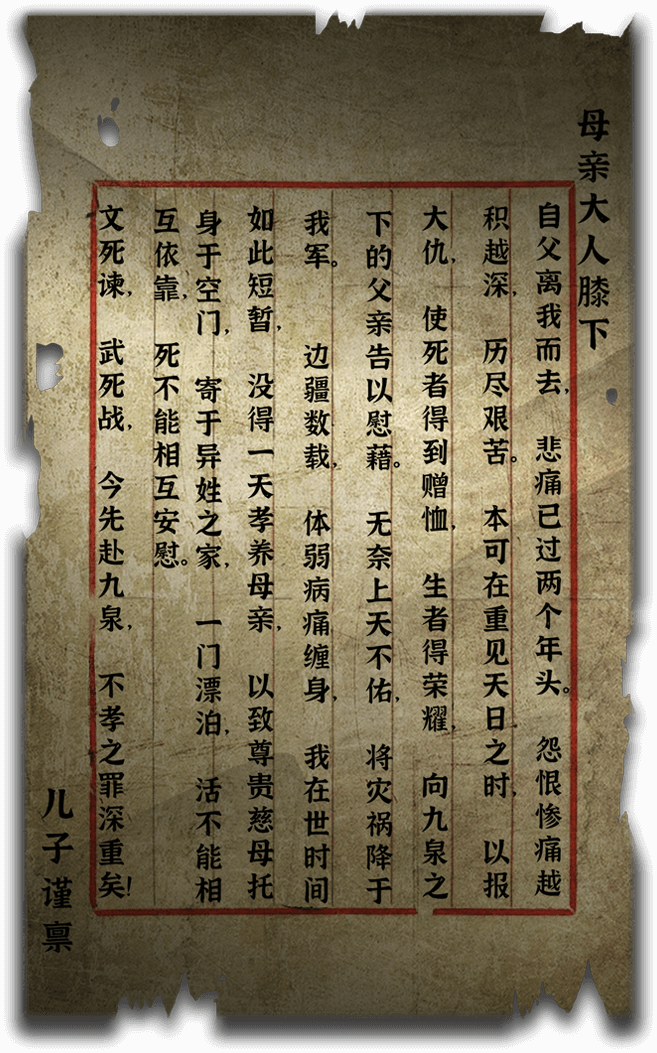 母亲大人膝下
自父离我而去，悲痛已过两个年头。怨恨惨痛越
积越深，历尽艰苦。本可在重见天日之时，以报
大仇，使死者得到赠恤，生者得荣耀，向九泉之
下的父亲告以慰藉。无奈上天不佑，将灾祸降于
我军。边疆数载，体弱病痛缠身，我在世时间
如此短暂，没得一天孝养母亲，以致尊贵慈母托
身于空门，寄于异姓之家，一门漂泊，活不能相
互依靠，死不能相互安慰。
文死谏，武死战，今先赴九泉，不孝之罪深重矣！
儿子谨禀